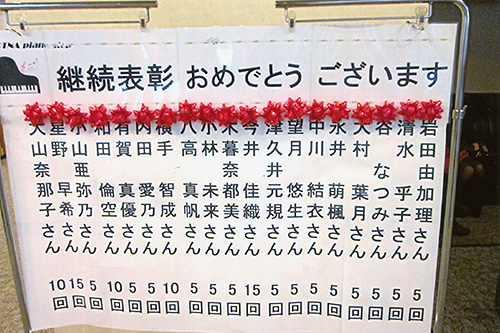 継続表彰 おめでとう ございます
岩田由加理さん 5回
清水 乎子さん 5回
谷 なつみさん 5回
大村 葉月さん 5回
永井 萌楓さん 5回
中川 結衣さん 5回
望月 悠生さん 5回
津久井元規さん 5回
今井 佳織さん 15回
木暮奈都美さん 5回
小林 未来さん 5回
八高 真帆さん 5回
横手 智成さん 10回
内田 愛乃さん 5回
有賀 真優さん 5回
和田 倫空さん 10回
小山亜弥乃さん 5回
星野 早希さん 15回
大山奈那子さん 10回